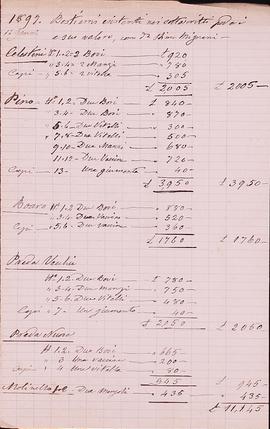 1897. Bestiami esistenti nei sottoscritti poderi
e suo valore, con
Celestini N. 1-2 = 2 Bovi £ 920
" 3-4 = 2 Manzi " 780
Capi 5-6 = 2 " 305
£ 2005 £ 2005 -
Pino N. 1.2. Due Bovi £ 840
" 3-4. Due Bovi " 870
" 5-6. Due Vitelli " 300 -
" 7-8. Due Vitelli " 500 -
" 9-10. Due Manzi " 680
" 11-12. Due Vaccine " 720
Capi 13 - Una giumenta " 40 -
£ 3950 £ 3950 -
Boaro N. 1.2. Due Bovi " 880
" 3.4. Due Vaccine " 520
Capi " 5.6. Due vaccine " 360
£ 1760 £ 1760 -
Preda Vecchia
N. 1.2. Due Bovi £ 780 -
" 3-4. Due Manzi " 750 -
" 5-6. Due Vitelli " 480
Capi " 7 - Una giumenta " 40
£ 2050 £ 2050
Preda Nuova
N. 1.2. Due Bovi " 665
" 3 Una vaccina " 200
Capi " 4 Una Vitella " 80
945 £ 945 -
Molinella Due Manzoli " 435 " 435 -
£ 11.145